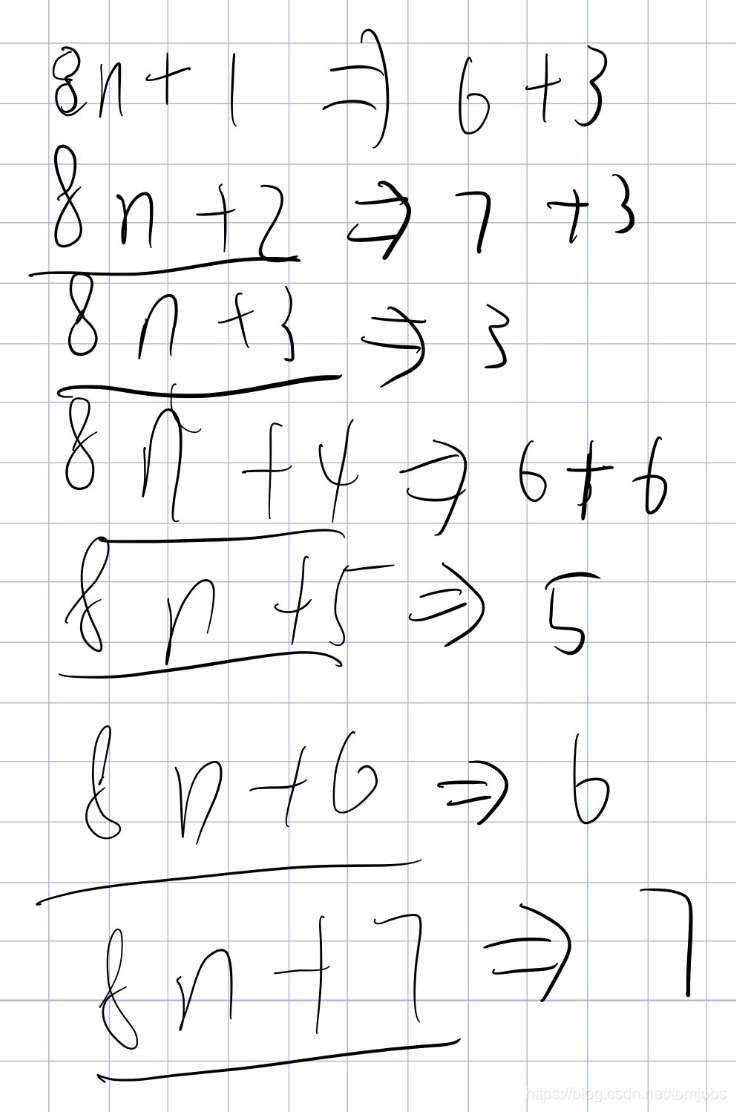 8n+1 ⇒ 6+3
8n+2 ⇒ 7+3
8n+3 ⇒ 3
8n+4 ⇒ 6+6
8n+5 ⇒ 5
8n+6 ⇒ 6
8n+7 ⇒ 7
https://blog.csdn.net/tomjobs